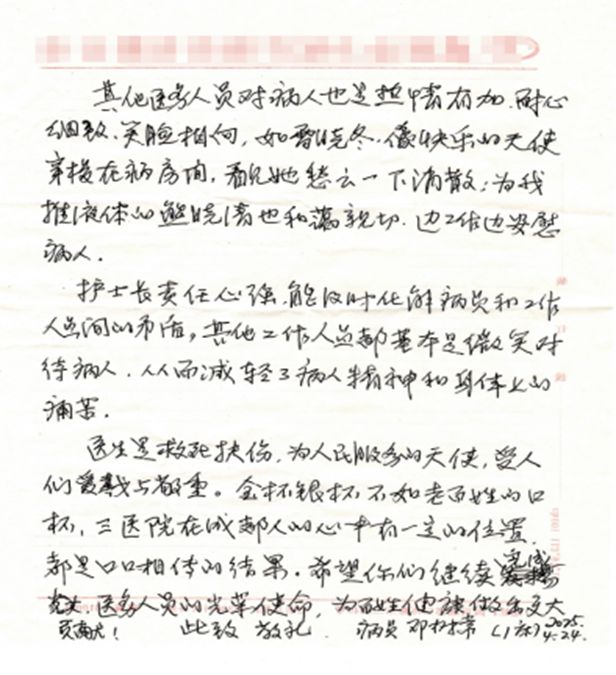 其他医务人员对病人也是热情有加.耐心
细致.笑脸相向,如晓冬.像快乐的天使
穿梭在病房间,看见她愁云一下消散;为我
推液体的熊晓清也和蔼亲切.边工作边安慰
病人.
护士长责任心强.能及时化解病员和工作
人员间的矛盾,其他工作人员都基本是微笑对
待病人.从而减轻了病人精神和身体上的
痛苦.
医生是救死扶伤.为人民服务的天使,受人
们爱戴与敬重。金杯银杯不如老百姓的口
杯,三医院在成都人的心中有一定的位置.
都是口口相传的结果.希望你们继续完成
医务人员的光荣使命,为百姓健康做出更大
贡献!此致敬礼.病员邓树(1床)2025.
4.24.